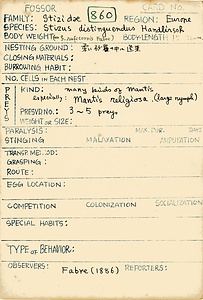 FOSSOR CARD NO.
FAMILY: Stizidae 860 REGION: Europe
SPECIES: Stizus distinguendus Handlirsch
BODY WEIGHT BODY-LENGTH
NESTING GROUND:
CLOSING MATERIALS:
BURROWING HABIT:
NO. CELLS IN EACH NEST
PREYS
KIND: many kinds of mantis
especially: Mantis religiosa (large nymph)
PREYS NO.: 3~5 preys.
WEIGHT OR SIZE:
PARALYSIS:
STINGING MALAXATION AMPUTATION
TRANSP. METHOD:
GRASPING:
ROUTE:
EGG LOCATION:
COMPETITION COLONIZATION SOCIALIZATION
SPECIAL HABITS:
TYPE OF BEHAVIOR:
OBSERVERS: Fabre (1886) REPORTERS: